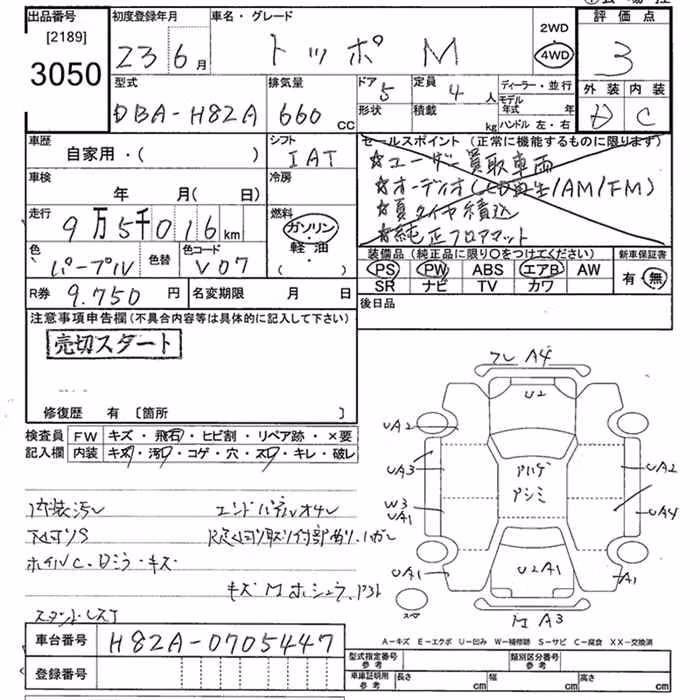 出品番号
[2189]
3050
初度登録年月
23 6月
車名・グレード
トッポ M
2WD
4WD
評価点
3
外装 内装
D C
型式
DBA-H82A
排気量
660 cc
ドア 5
形状
定員 4人
積載 kg
ディーラー・並行
モデル年式 年
ハンドル 左・右
車歴
自家用・( )
シフト
IAT
セールスポイント(正常に機能するものに限ります)
☆ユーザー買取車両
☆オーディオ(CD再生/AM/FM)
☆夏タイヤ積込
☆純正フロアマット
車検
年 月( 日)
冷房
走行
9万5千016km
燃料
ガソリン・
軽油・
( )
色
パープル
色替
色コード
V07
装備品(純正品に限り〇をつけてください)
PS PW ABS エアB AW
SR ナビ TV カワ
新車保証書
有・無
R券 9.750円
名変期限 月 日
後日品
注意事項申告欄(不具合内容等は具体的に記入して下さい)
売切スタート
修復歴 有 〔箇所 〕
検査員記入欄
FW キズ・飛石・ヒビ割・リペア跡・×要
内装 キズ・汚レ・コゲ・穴・スレ・キレ・破レ
内装汚レ
下廻リS
ホイルC.Dミラ-キズ
フレ A4
U2
UA2
UA3
W3
UA1
UA1
アハゲ
アシミ
UA2
UA4
U2A1
A1
スペ
M A3
A-キズ E-エクボ U-凹み W-補修跡 S-サビ C-腐食 XX-交換済
車台番号 H82A-0705447
登録番号
型式指定番号 参考
類別区分番号 参考
車庫証明用 参考
長さ cm
幅 cm
高さ cm